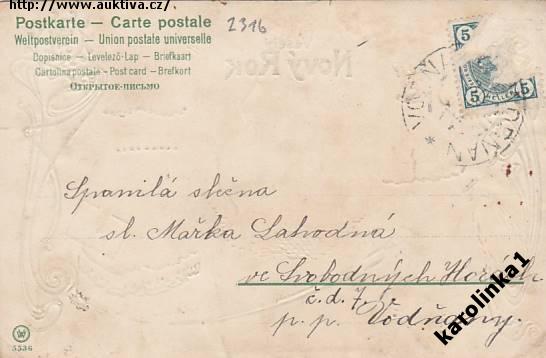 http://www.auktiva.cz/
Postkarte – Carte postale
Weltpostverein – Union postale universelle
Dopisnice – Levelező-Lap – Briefkaart
Cartolina postale – Post card – Brefkort
Открытое-письмо
2316
Nový Rok
5
5 5
Spanilá slečna
sl. Mařka Lahodná
ve Svobodných Horách
č. d. 7.
p. p. Vodňany.
5536
karolinka1